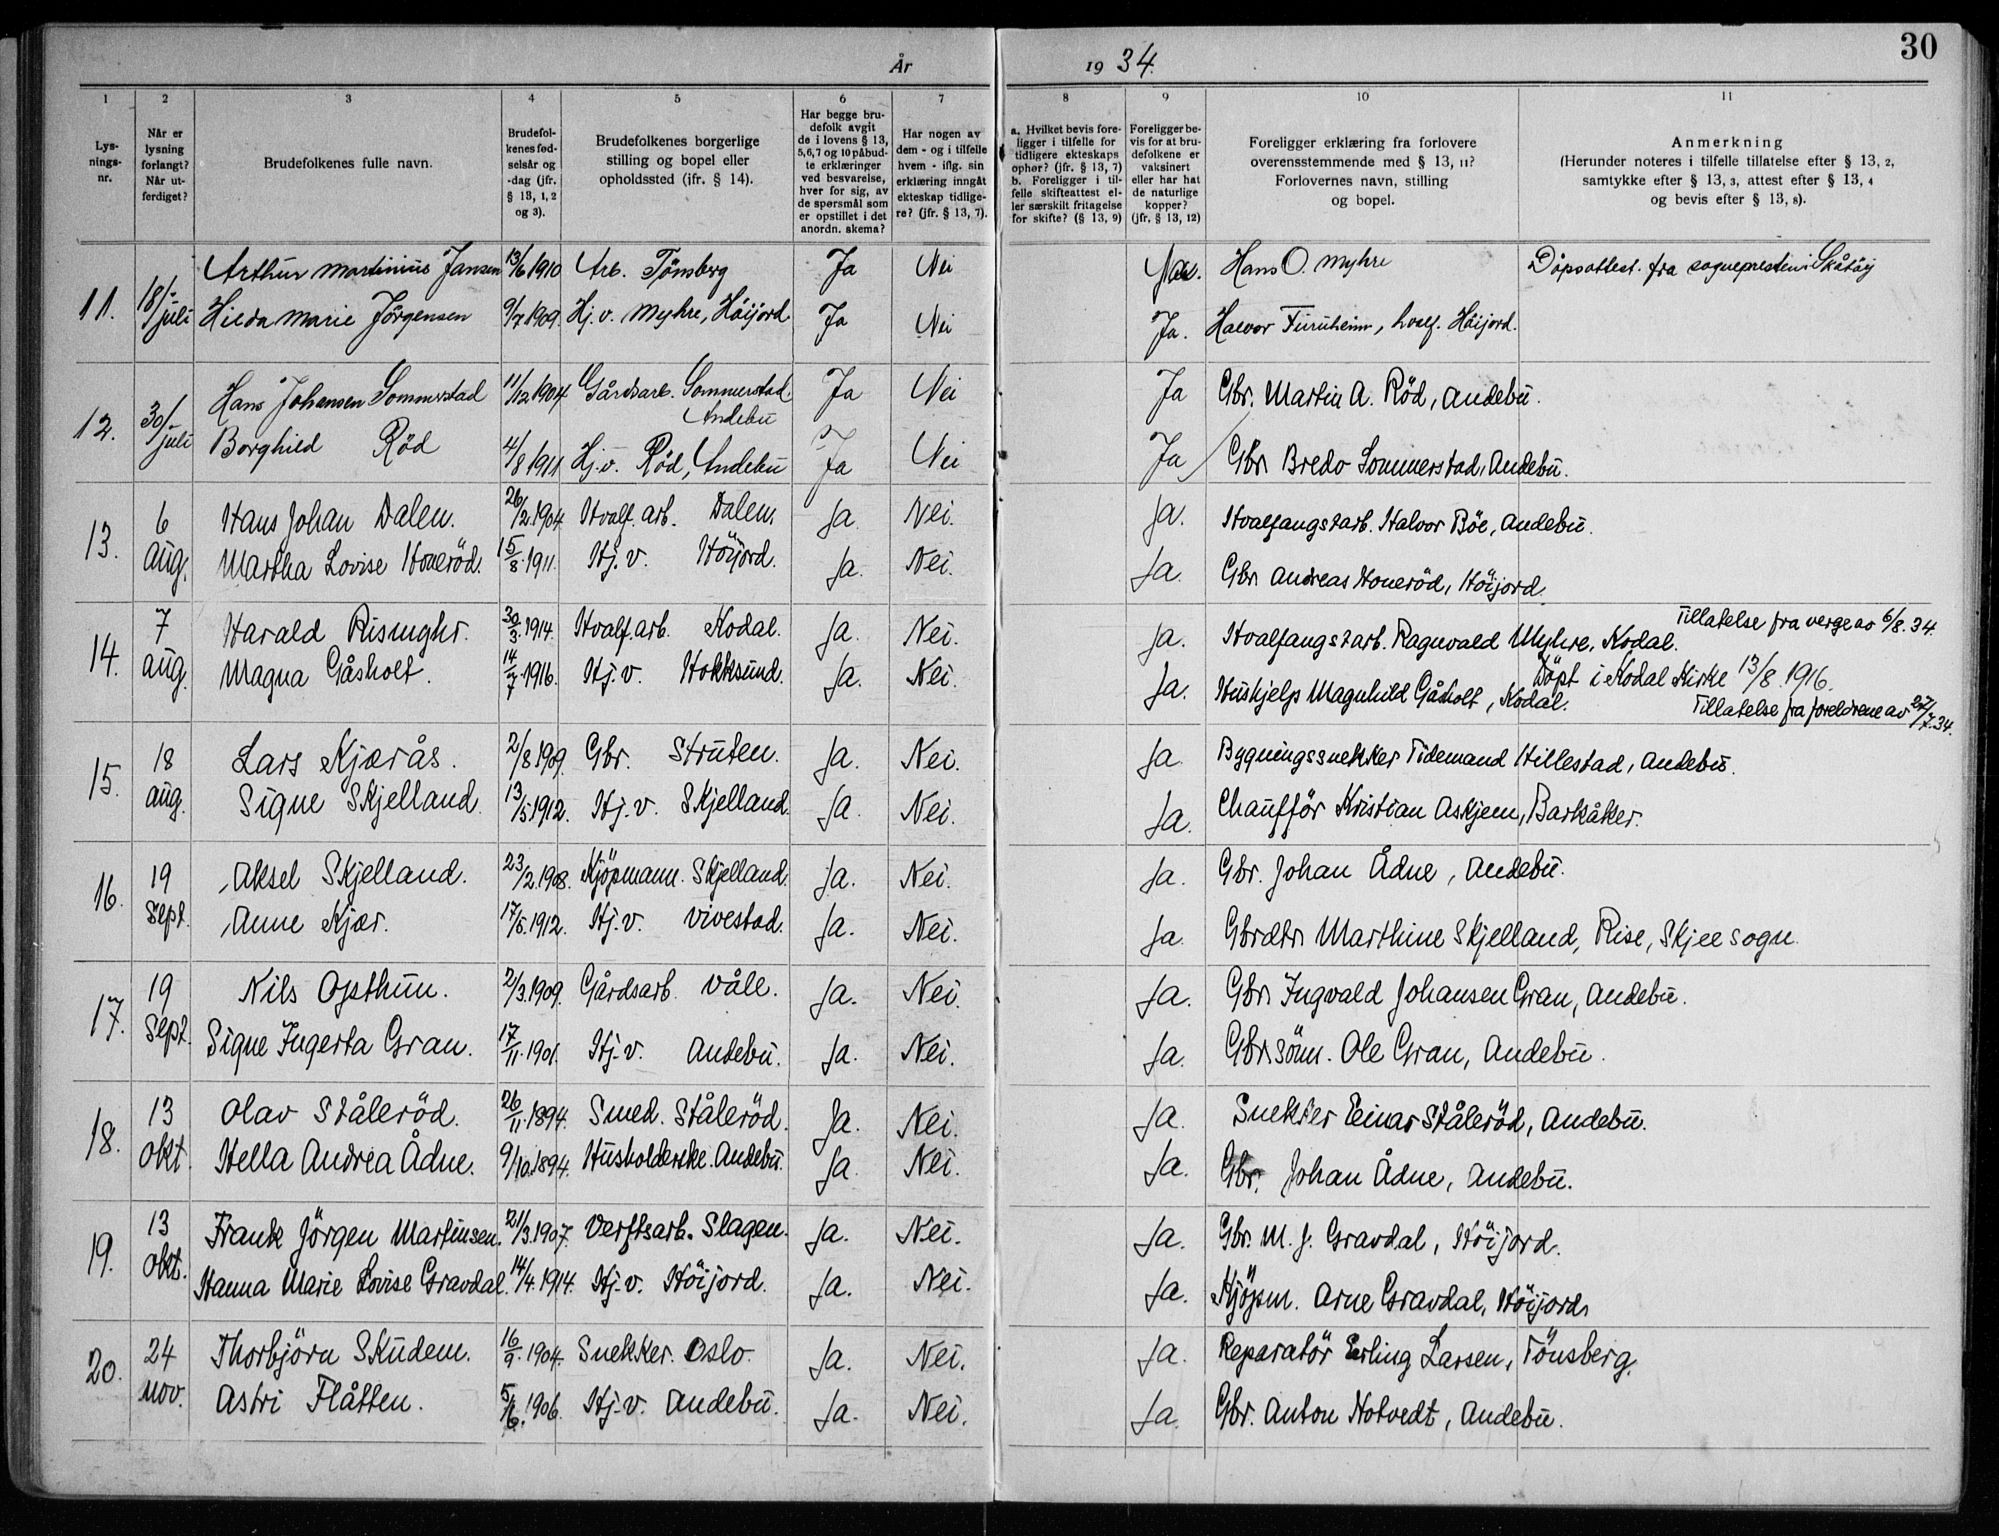 30
År 1934.
1 2 3 4 5 6 7 8 9 10 11
Lys-nings-nr.
Når er lysning forlangt? Når ut-ferdiget?
Brudefolkenes fulle navn.
Brudefol-kenes fød-selsår og -dag (jfr. § 13, 1, 2 og 3).
Brudefolkenes borgerlige stilling og bopel eller opholdssted (ifr. § 14).
Har begge bru-defolk avgit de i lovens § 13, 5, 6, 7 og 10 påbud-te erklæringer ved besvarelse, hver for sig, av de spørsmål som er opstillet i det anordn. skema?
Har nogen av dem - og i tilfelle hvem - iflg. sin erklæring inngåt ekteskap tidlige-re? (jfr. § 13, 7).
a. Hvilket bevis fore-ligger i tilfelle for tidligere ekteskaps ophør? (jfr. § 13, 7) b. Foreligger i til-felle skifteattest el-ler særskilt fritagelse for skifte? (§ 13, 9)
Foreligger be-vis for at bru-defolkene er vaksinert eller har hat de naturlige kopper? (jfr. § 13, 12)
Foreligger erklæring fra forlovere overensstemmende med § 13, 11? Forlovernes navn, stilling og bopel.
Anmerkning (Herunder noteres i tilfelle tillatelse efter § 13, 2, samtykke efter § 13, 3, attest efter § 13, 4 og bevis efter § 13, 8).
11. 18/juli Arthur Martinius Jansen 13/6 1910 Arb. Tönsberg Ja Nei Hans O. Myhre Dåpsattest. fra sognepresten i Skåtöy
Hilda Marie Jörgensen 9/7 1909. Hj.v. Myhre, Höijord Ja Nei Ja. Halvor Furuheim, hvalf. Höijord.
12. 30/juli Hans Johansen Sommerstad 11/12 1904 Gårdsarb. Sommerstad. Andebu Ja Nei Ja Gbr. Martin A. Röd, Andebu.
Borghild Röd 4/8 1911 Hj.v. Röd, Andebu Ja Nei Ja Gbr. Bredo Sommerstad, Andebu.
13. 6 aug. Hans Johan Dalen. 26/2.1904. Hvalf. arb. Dalen. Ja. Nei. Ja. Hvalfangstarb. Halvor Böe, Andebu.
Martha Lovise Honeröd. 15/8.1911. Hj.v. Höijord. Ja. Nei. Ja. Gbr. Andreas Honeröd, Höijord.
14. 7 aug. Harald Rismyhr. 30/3.1914. Hvalf.arb. Kodal. Ja. Nei. Ja. Hvalfangstarb. Ragnvald Myhre, Kodal. Tillatelse fra verge av 6/8.34.
Magna Gåsholt. 14/7.1916. Hj.v. Hokksund. Ja. Nei. Ja. Hushjelp Magnhild Gåsholt, Kodal. Döpt i Kodal Kirke 13/8.1916.
Tillatelse fra foreldrene av 27/7.34.
15. 18 aug. Lars Kjærås. 2/8 1909. Gbr. Struten. Ja. Nei. Ja. Bygningssnekker Tidemand Hillestad, Andebu.
Signe Skjelland. 13/5 1912. Hj.v. Skjelland. Ja. Nei. Ja. Chaufför Kristian Askjem, Barkåker.
16. 19 sept. Aksel Skjelland. 23/2.1908. Kjöpmann. Skjelland. Ja. Nei. Ja. Gbr. Johan Ådne, Andebu.
Anne Kjær. 17/5.1912. Hj.v. Vivestad. Ja. Nei. Ja. Gbrdtr. Marthine Skjelland, Rise, Skjee sogn.
17. 19 sept. Nils Opsthun. 2/3.1909. Gårdsarb. Våle. Ja. Nei. Ja. Gbr. Ingvald Johansen Gran, Andebu.
Signe Ingerta Gran. 17/11.1901. Hj.v. Andebu. Ja. Nei. Ja. Gbr.sönn. Ole Gran, Andebu.
18. 13 okt. Olav Ståleröd. 26/11.1894. Smed. Ståleröd. Ja. Nei. Ja. Snekker Einar Ståleröd, Andebu.
Hella Andrea Ådne. 9/10.1894. Husholderske. Andebu. Ja. Nei. Ja. Gbr. Johan Ådne, Andebu.
19. 13 okt. Frank Jörgen Martinsen. 21/3.1907. Verftsarb. Slagen. Ja. Nei. Ja. Gbr. M. J. Gravdal, Höijord.
Hanna Marie Lovise Gravdal. 14/4.1914. Hj.v. Höijord. Ja. Nei. Ja. Kjöpm. Arne Gravdal, Höijord.
20. 24 nov. Thorbjörn Skudem. 16/9.1904. Snekker. Oslo. Ja. Nei. Ja. Reparatör Erling Larsen, Tönsberg.
Astri Flåtten. 5/6.1906. Hj.v. Andebu. Ja. Nei. Ja. Gbr. Anton Hotvedt, Andebu.